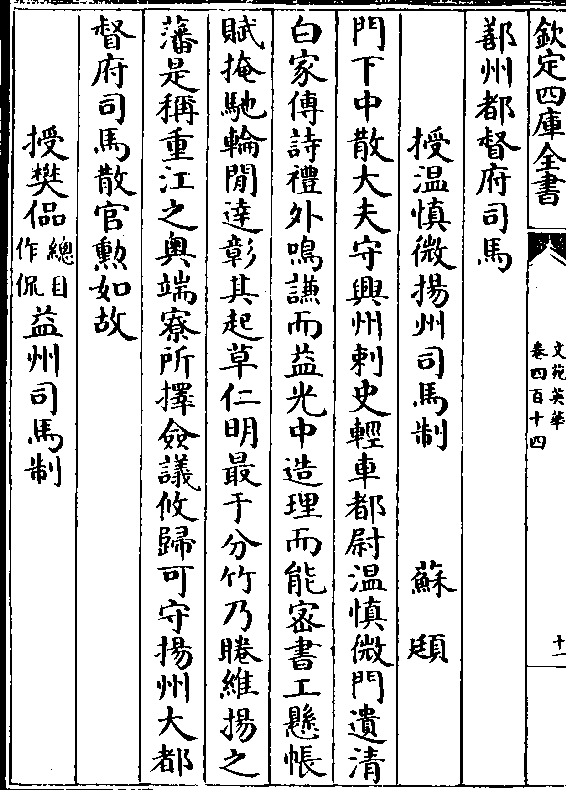 欽定四庫全書
文苑英華
卷四百十四
十一
鄯州都督府司馬
授温慎微揚州司馬制 蘇頲
門下中散大夫守興州刺史輕車都尉温慎微門遺清
白家傳詩禮外鳴謙而益光中造理而能密書工懸帳
賦掩馳輪閒達彰其起草仁明最于分竹乃睠維揚之
藩是稱重江之奥端寮所擇僉議攸歸可守揚州大都
督府司馬散官勲如故
授樊偘總目作侃益州司馬制